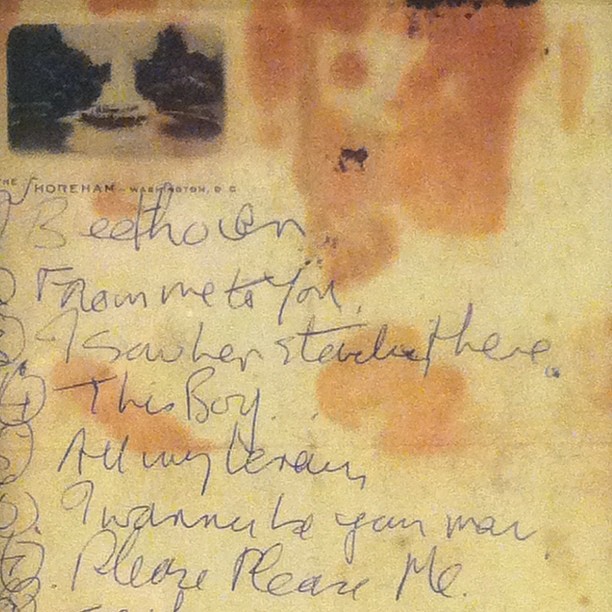 THE SHOREHAM - WASHINGTON, D. C.
1) Beethoven
2) From me to You.
3) I Saw her standing there.
4) This Boy.
5) All my loving
6). I wanna be your man.
7). Please Please Me.